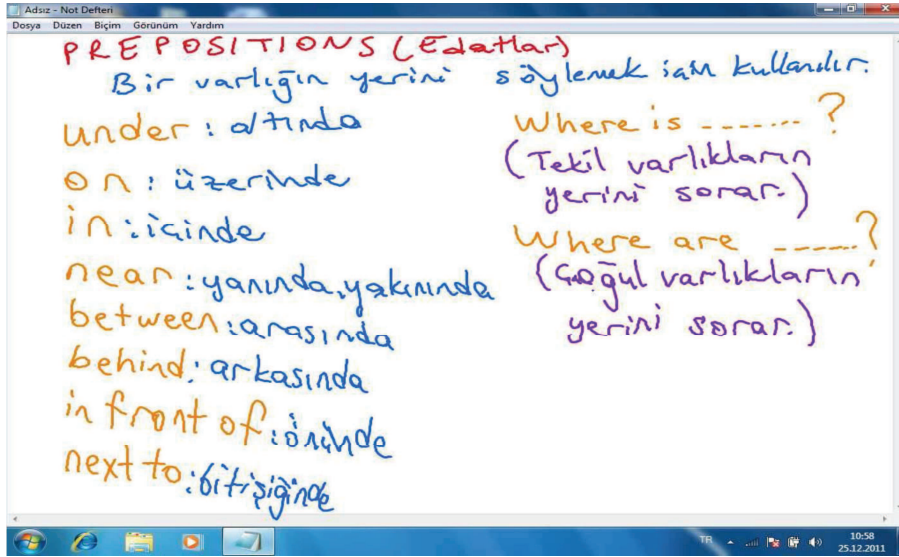 Adsız - Not Defteri
Dosya Düzen Biçim Görünüm Yardım
PREPOSITIONS (Edatlar)
Bir varlığın yerini söylemek için kullanılır.
under: altında
on: üzerinde
in: içinde
near: yanında, yakınında
between: arasında
behind: arkasında
in front of: önünde
next to: bitişiğinde
Where is ------- ?
(Tekil varlıkların
yerini sorar.)
Where are ------?
(Çoğul varlıkların
yerini sorar.)
TR 10:58
25.12.2011